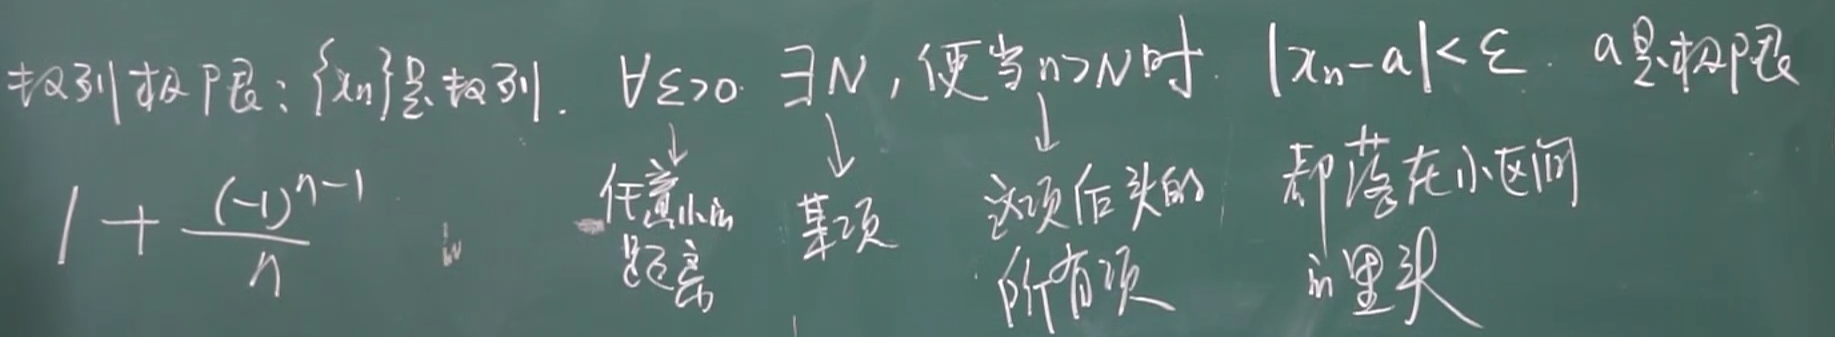 数列极限：{xn}是数列. ∀ε>0 ∃N，使当n>N时. |xn-a|<ε. a是极限
1 + (-1)^{n-1}/n
任意小的距离
某项
这项后头的所有项
都落在小区间的里头